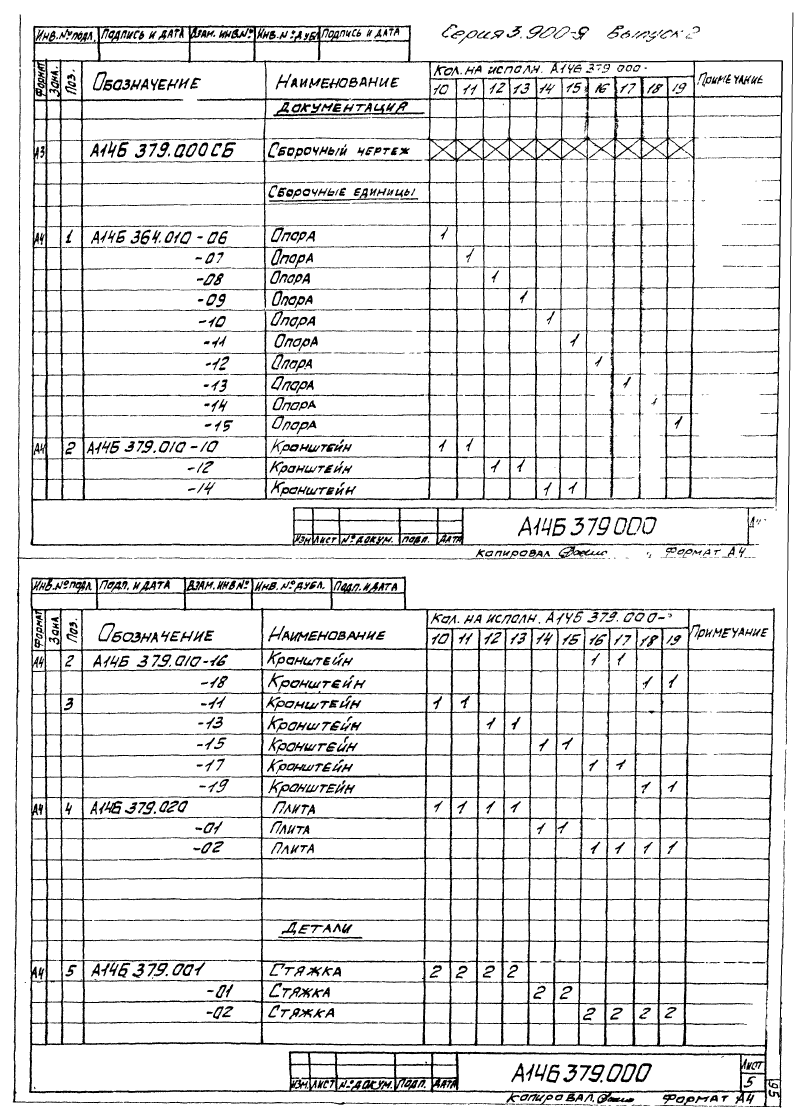 Серия 3.900-9 Выпуск 2
Инв. № подл. Подпись и дата Взам. инв. № Инв. № дубл Подпись и дата
Формат Зона. Поз. Обозначение Наименование Кол. на исполн. А14Б 379 000- Примечание
10 11 12 13 14 15 16 17 18 19
Документация
А3 А14Б 379.000 СБ Сборочный чертеж
Сборочные единицы
А4 1 А14Б 364.010-06 Опора 1
-07 Опора 1
-08 Опора 1
-09 Опора 1
-10 Опора 1
-11 Опора 1
-12 Опора 1
-13 Опора 1
-14 Опора 1
-15 Опора 1
А4 2 А14Б 379.010-10 Кронштейн 1 1
-12 Кронштейн 1 1
-14 Кронштейн 1 1
Изм Лист № докум. Подп. Дата
А14Б 379 000
Копировал Формат А4
Инв. № подл Подп. и дата Взам. инв № Инв. № дубл. Подп. и дата
Формат Зона Поз. Обозначение Наименование Кол. на исполн. А14Б 379.000- Примечание
10 11 12 13 14 15 16 17 18 19
А4 2 А14Б 379.010-16 Кронштейн 1 1
-18 Кронштейн 1 1
3 -11 Кронштейн 1 1
-13 Кронштейн 1 1
-15 Кронштейн 1 1
-17 Кронштейн 1 1
-19 Кронштейн 1 1
А4 4 А14Б 379.020 Плита 1 1 1 1
-01 Плита 1 1
-02 Плита 1 1 1 1
Детали
А4 5 А14Б 379.001 Стяжка 2 2 2 2
-01 Стяжка 2 2
-02 Стяжка 2 2 2 2
Изм. Лист № докум. Подп. Дата
А14Б 379.000
Лист
5
Копировал. Формат А4
95